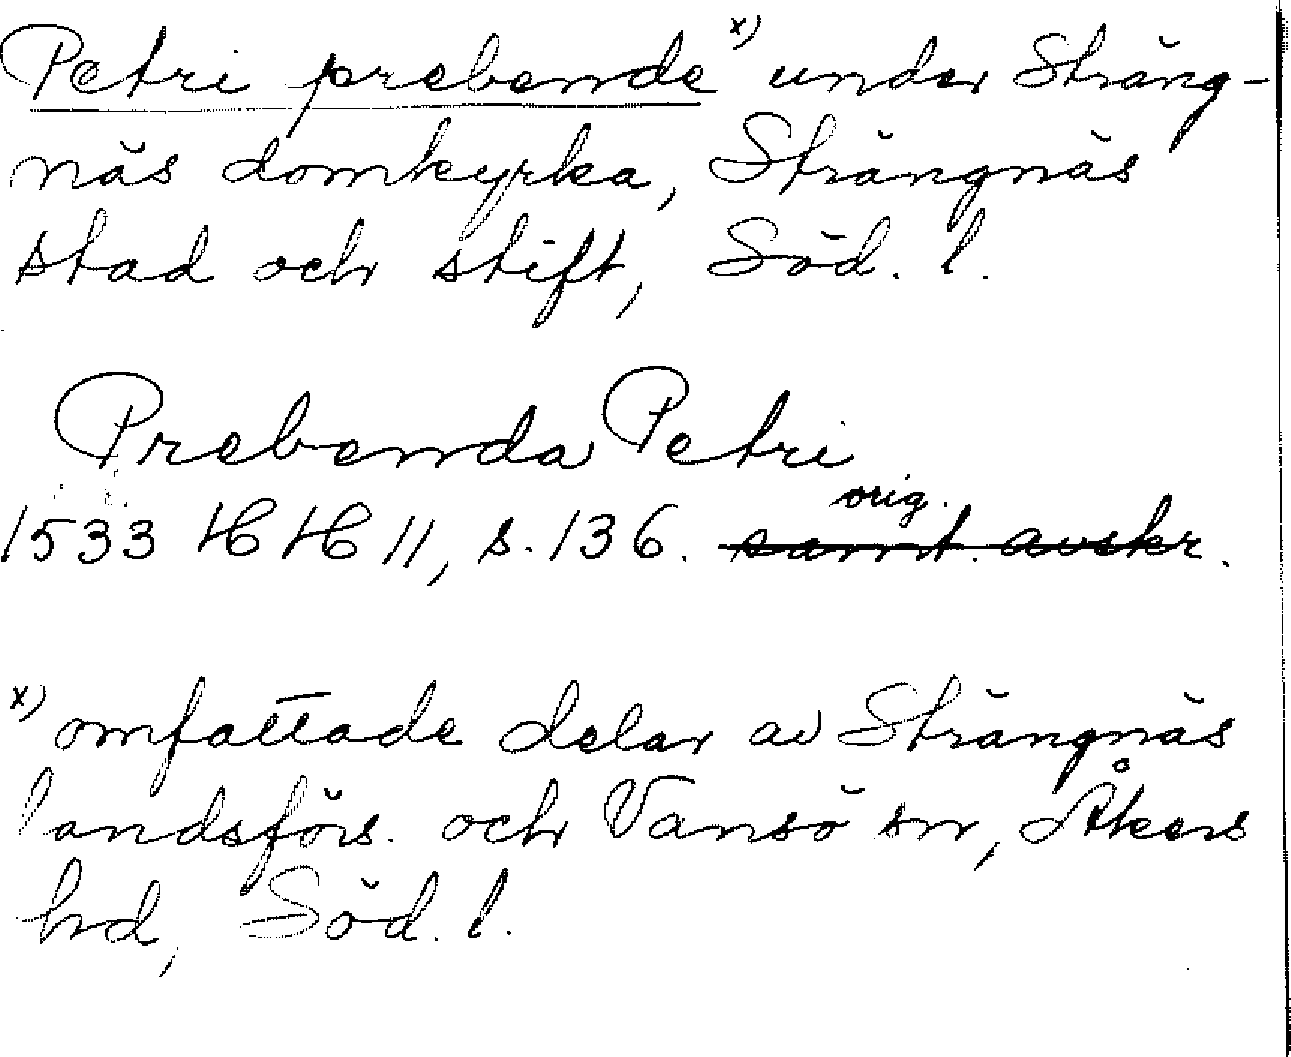 Petri prebende x) under Sträng-
näs domkyrka, Strängnäs
stad och stift, Söd. l.
Prebenda Petri
orig.
1533 HH 11, s. 136. samt. avskr.
x) omfattade delar av Strängnäs
landsförs. och Vansö sn, Åkers
hd, Söd. l.